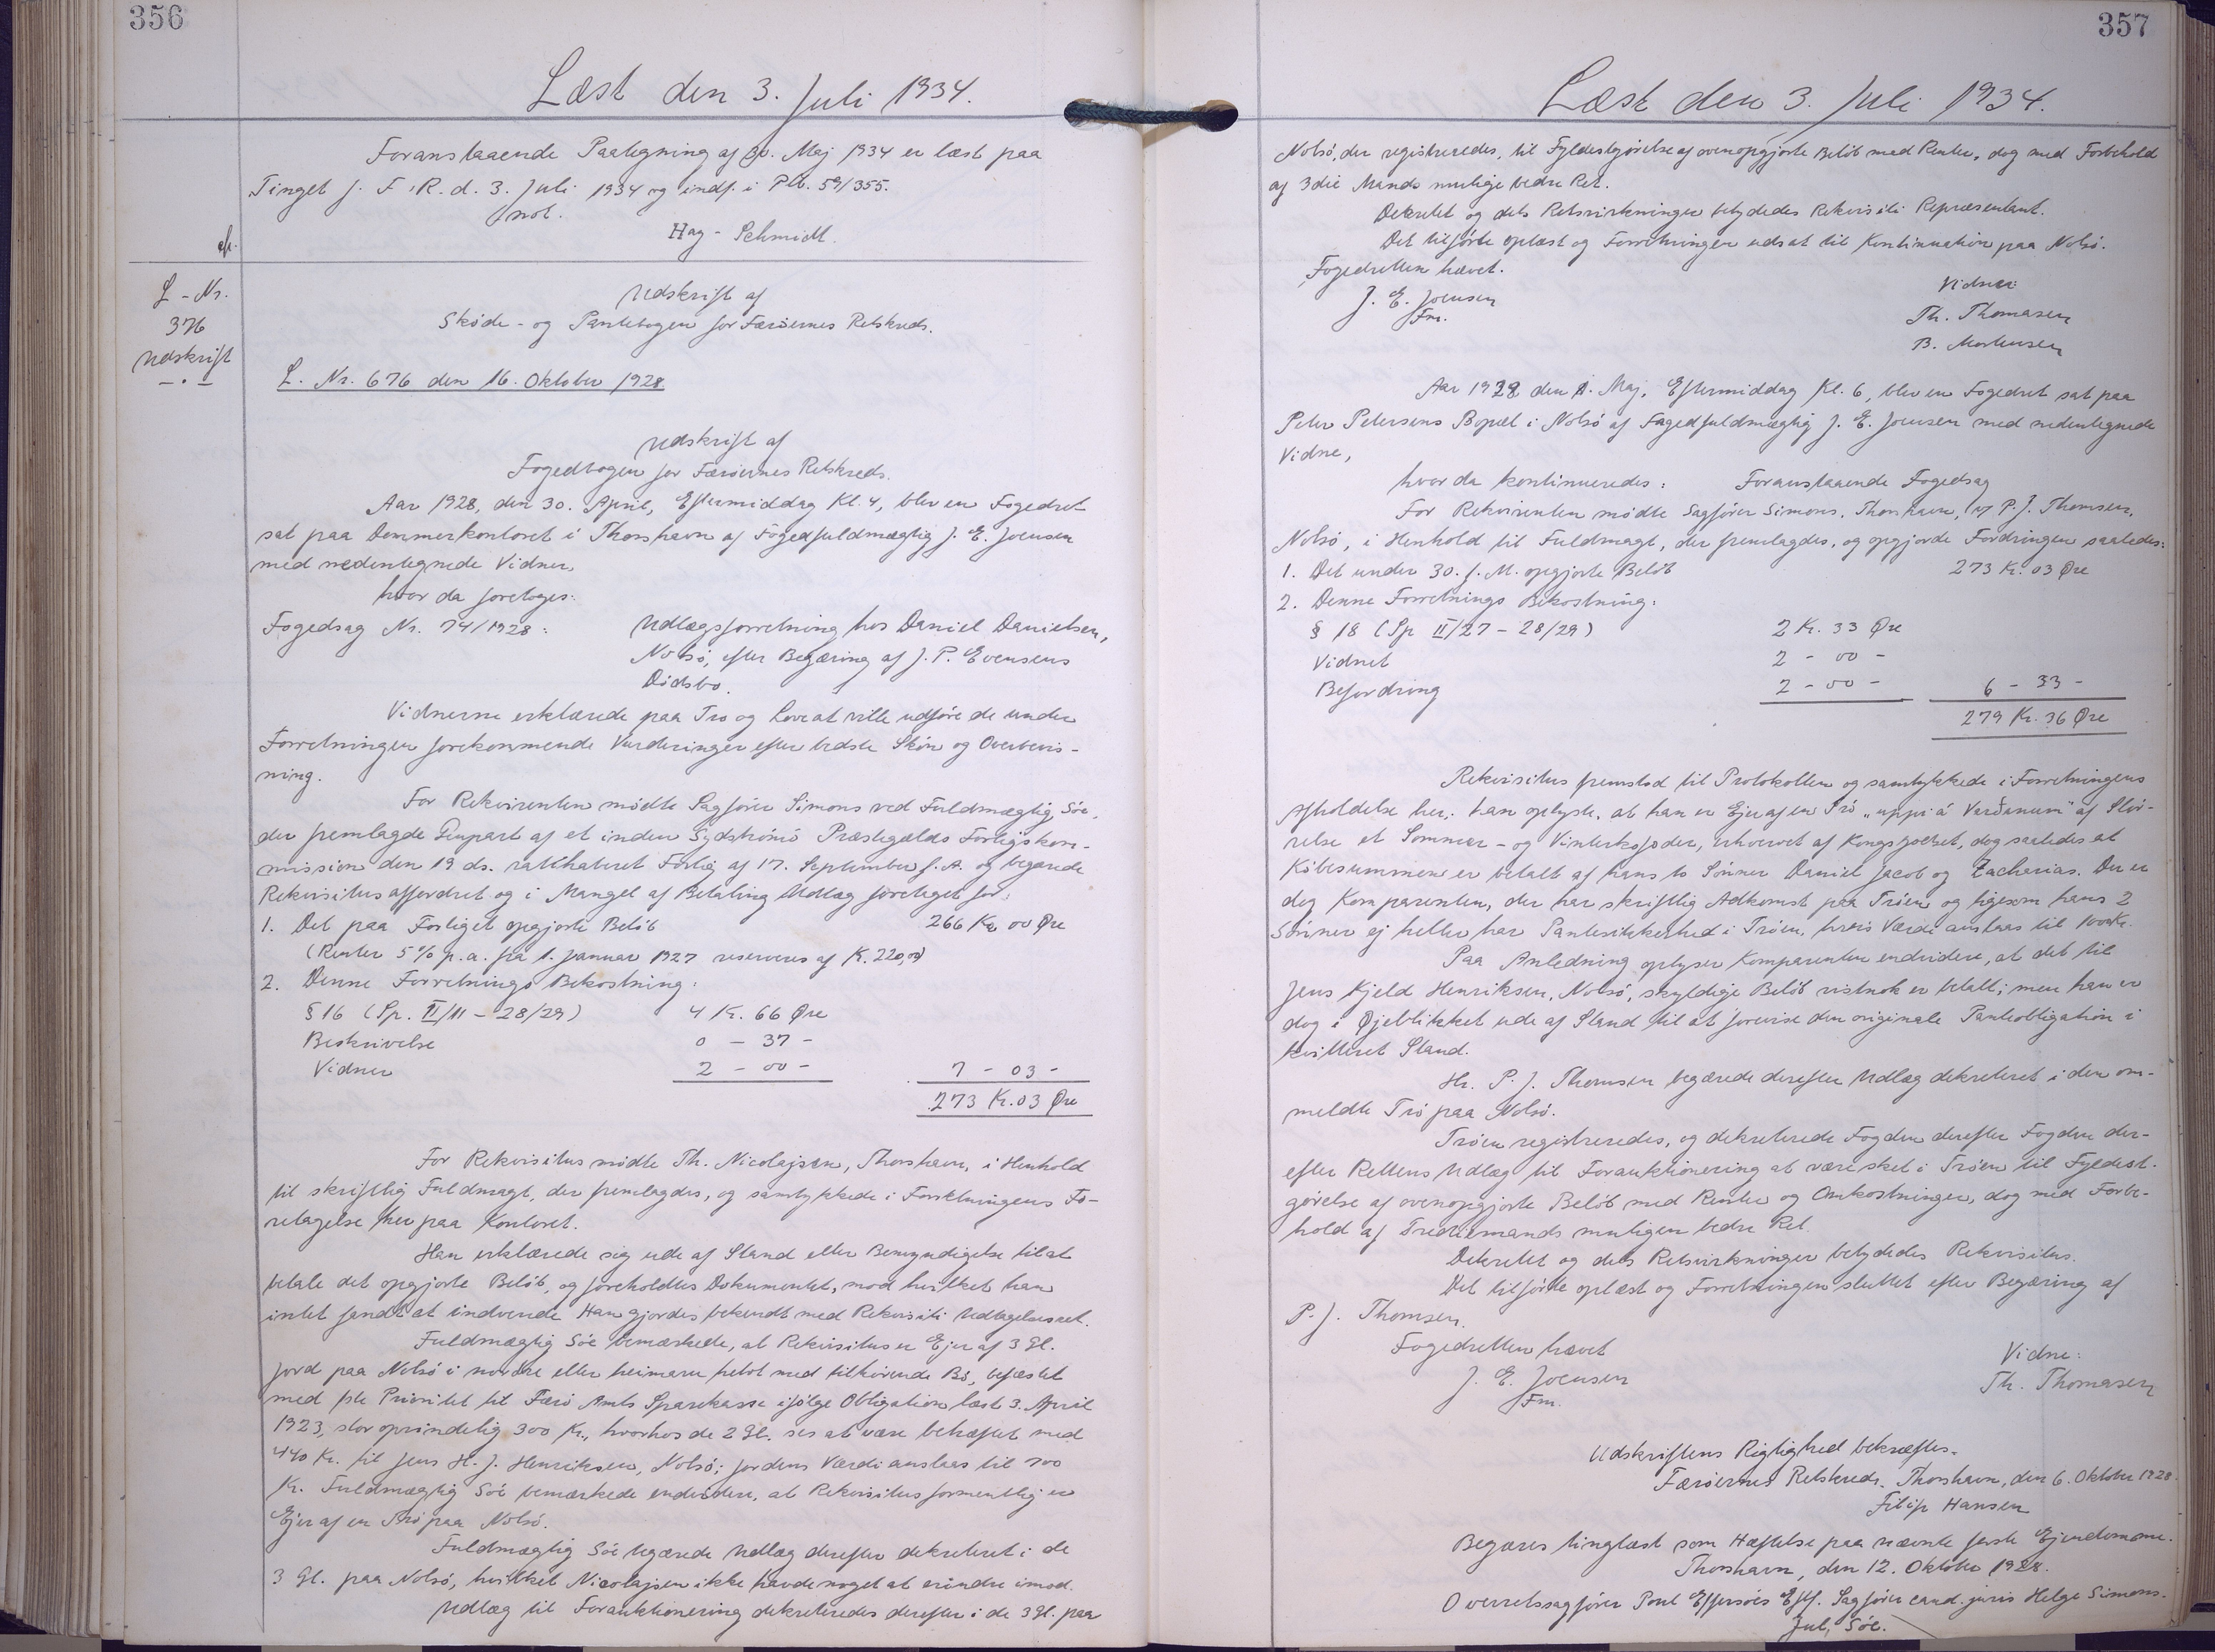 356
Læst den 3. Juli 1934.
Foranstaaende Paategning af 30. Maj 1934 er læst paa
Tinget f. F. R. d. 3. Juli 1934 og indf. i Ptb. 59/355.
Hag-Schmidt.
L-Nr.
376
Udskrift
Udskrift af
Skøde- og Pantebogen for Færøernes Retskreds.
L. Nr. 676 den 16. Oktober 1928
Udskrift af
Fogedbogen for Færøernes Retskreds.
Aar 1928, den 30. April, Eftermiddag Kl. 4, blev en Fogedret
sat paa Dommerkontoret i Thorshavn af Fogedfuldmægtig J. E. Joensen
med nedentegnede Vidner,
hvor da foretoges:
Fogedsag Nr. 74/1928: Udlægsforretning hos Daniel Danielsen,
Nolsö, efter Begæring af J. P. Evensens
Dödsbo.
Vidnerne erklærede paa Tro og Love at ville udføre de under
Forretningen forekommende Vurderinger efter bedste Skön og Overbevis-
ning.
For Rekvirenten mödte Sagfører Simons ved Fuldmægtig Söe,
der fremlagde Genpart af et inden Sydströmö Præstegælds Forligskom-
mission den 19 ds. ratihaberet Forlig af 17. September f. A. og begærede
Rekvisitus affordret og i Mangel af Betaling Udlæg foretaget for:
1. Det paa Forliget opgjorte Belöb 266 Kr 00 Øre
(Renter 5% p.a. fra 1. Januar 1927 reserveres af K. 220,00)
2. Denne Forretnings Bekostning:
§ 16 (Sp. II/11 - 28/29) 4 Kr. 66 Øre
Beskrivelse 0 - 37 -
Vidner 2 - 00 - 7 - 03 -
273 Kr. 03 Øre
For Rekvisitus mödte Th. Nicolajsen, Thorshavn, i Henhold
til skriftlig Fuldmagt, der fremlagdes, og samtykkede i Forretningens Fo-
retagelse her paa Kontoret.
Han erklærede sig ude af Stand eller Bemyndigelse til at
betale det opgjorte Belöb, og foreholdtes Dokumentet, mod hvilket han
intet fandt at indvende Han gjordes bekendt med Rekvisiti Udtagelsesret.
Fuldmægtig Söe bemærkede, at Rekvisitus er Ejer af 3 Gl.
Jord paa Nolsö i nordre eller heimaru helvt med tilhörende Bö, behæftet
med 1ste Prioritet til Færö Amts Sparekasse ifølge Obligation læst 3. April
1923, stor oprindelig 300 Kr., hvorhos de 2 Gl. ses at være behæftet med
440 Kr. til Jens H. J. Henriksen, Nolsö; Jordens Værdi anslaas til 700
Kr. Fuldmægtig Söe bemærkede endvidere, at Rekvisitus formentlig er
Ejer af en Trö paa Nolsö.
Fuldmægtig Söe begærede Udlæg derefter dekreteret i de
3 Gl. paa Nolsö, hvilket Nicolajsen ikke havde noget at erindre imod.
Udlæg til Forauktionering dekreteredes derefter i de 3 Gl. paa
357
Læst den 3. Juli 1934.
Nolsö, der registreredes, til Fyldestgørelse af ovenopgjorte Belöb med Renter, dog med Forbehold
af 3die Mands mulige bedre Ret.
Dekretet og dets Retsvirkninger betydedes Rekvisiti Repræsentant.
Det tilførte oplæst og Forretningen udsat til Kontinuation paa Nolsö.
Fogedretten hævet.
J. E. Joensen
Fm.
Vidner:
Th. Thomasen
B. Mortensen
Aar 1928 den 1. Maj, Eftermiddag Kl. 6, blev en Fogedret sat paa
Peter Petersens Bopæl i Nolsö af Fogedfuldmægtig J. E. Joensen med nedentegnede
Vidne,
hvor da kontinueredes: Foranstaaende Fogedsag
For Rekvirenten mödte Sagfører Simons, Thorshavn, v. P. J. Thomsen,
Nolsö, i Henhold til Fuldmagt, der fremlagdes, og opgjorde Fordringen saaledes:
1. Det under 30. f. M. opgjorte Belöb 273 Kr. 03 Øre
2. Denne Forretnings Bekostning:
§ 18 (Sp II/27 - 28/29) 2 Kr. 33 Øre
Vidnet 2 - 00 -
Befordring 2 - 00 - 6 - 33 -
279 Kr. 36 Øre
Rekvisitus fremstod til Protokollen og samtykkede i Forretningens
Afholdelse her; han oplyste, at han er Ejer af en Trö „uppi á Varðanum" af Stör-
relse et Sommer- og Vinterkofoder, erhvervet af Kongsgodset, dog saaledes at
Köbesummen er betalt af hans to Sönner Daniel Jacob og Zacharias. Der er
dog Komparenten, der har skriftlig Adkomst paa Tröen og ligesom hans 2
Sönner ej heller har Pantesikkerhed i Tröen, hvis Værdi anslaas til 1000 Kr.
Paa Anledning oplyser Komparenten endvidere, at det til
Jens Kjeld Henriksen, Nolsö, skyldige Belöb vistnok er betalt; men han er
dog i Øjeblikket ude af Stand til at forevise den originale Panteobligation i
kvitteret Stand.
Hr. P. J. Thomsen begærede derefter Udlæg dekreteret i den om-
meldte Trö paa Nolsö.
Tröen registreredes, og dekreterede Fogden derefter Fogden der-
efter Rettens Udlæg til Forauktionering at være sket i Tröen til Fyldest-
görelse af ovenopgjorte Belöb med Renter og Omkostninger, dog med Forbe-
hold af Trediemands muligen bedre Ret.
Dekretet og dets Retsvirkninger betydedes Rekvisitus.
Det tilførte oplæst og Forretningen sluttet efter Begæring af
P. J. Thomsen.
Fogedretten hævet
J. E. Joensen
Fm.
Vidne:
Th. Thomasen
Udskriftens Rigtighed bekræftes.
Færöernes Retskreds, Thorshavn, den 6. Oktober 1928.
Filip Hansen
Begæres tinglæst som Hæftelse paa nævnte faste Ejendomme.
Thorshavn, den 12. Oktober 1928.
Overretssagfører Poul Effersöes Eftf. Sagfører cand. juris Helge Simons.
Jul. Söe.